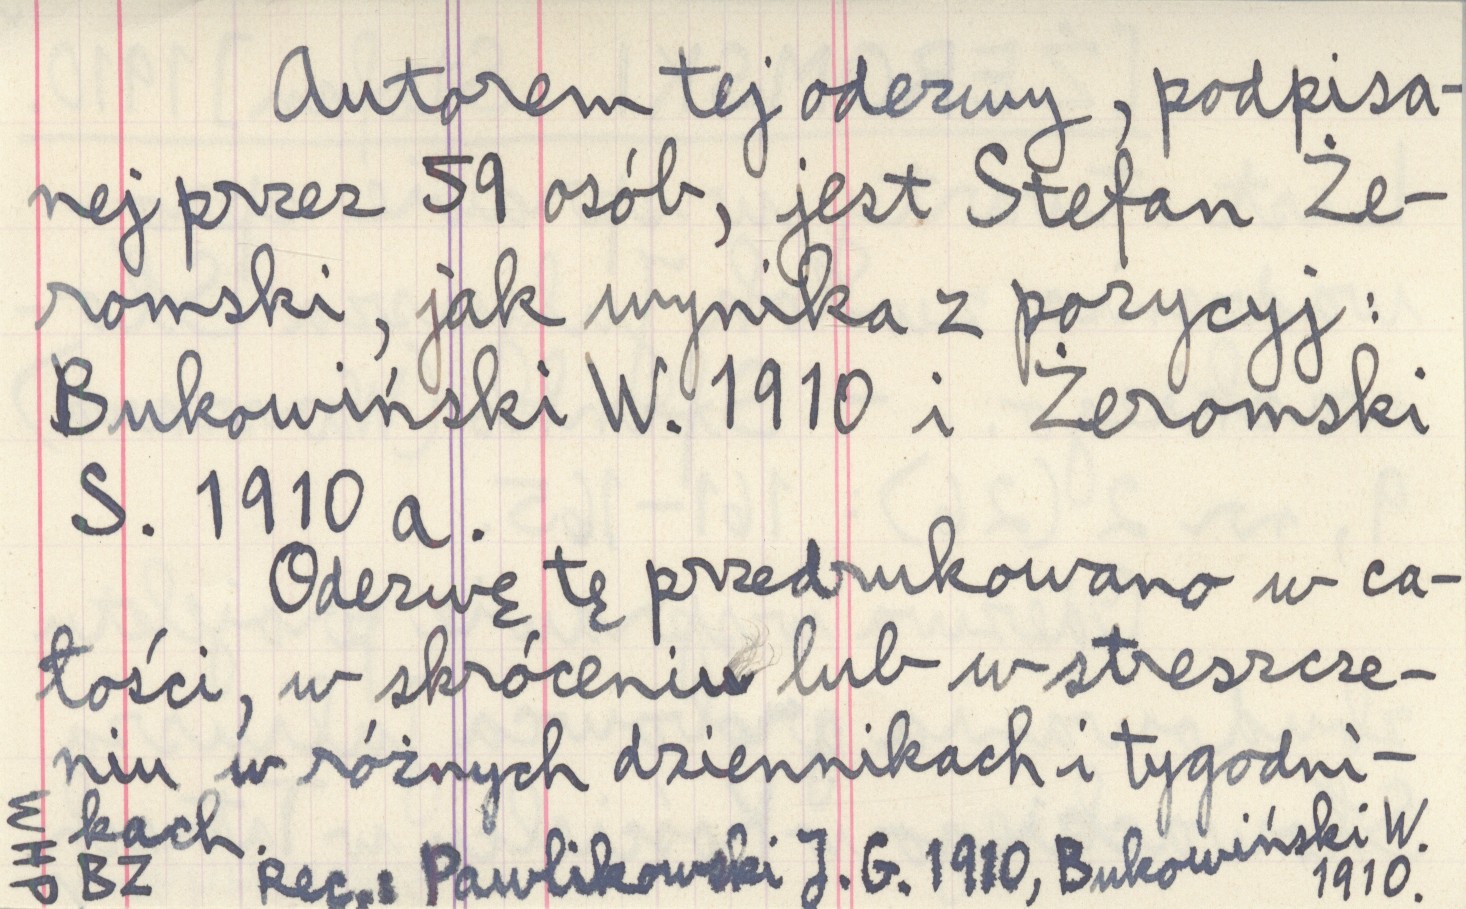 Autorem tej odezwy, podpisa-
nej przez 59 osób, jest Stefan Że-
romski, jak wynika z pozycyj:
Bukowiński W. 1910 i Żeromski
S. 1910 a.
Odezwę tę przedrukowano w ca-
łości, w skróceniu lub w streszcze-
niu w różnych dziennikach i tygodni-
kach.
BZ Rec.: Pawlikowski J. G. 1910, Bukowiński W.
1910.